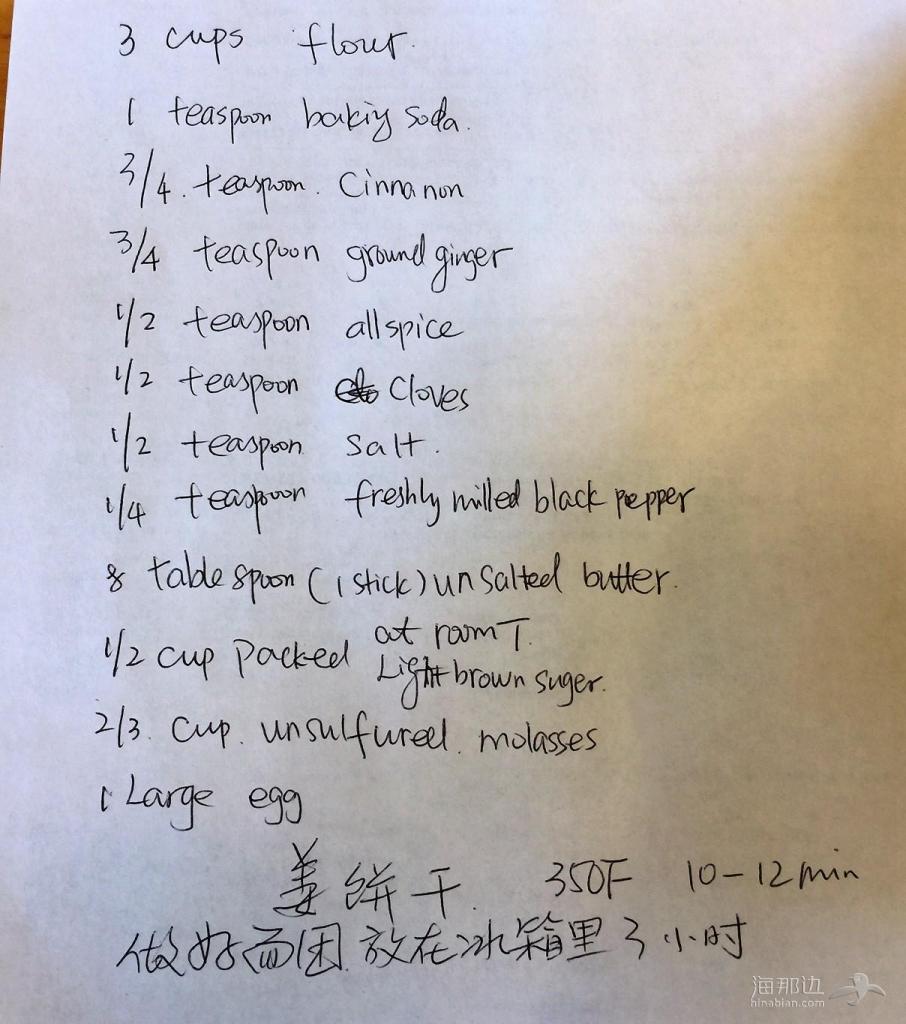 3 cups flour.
1 teaspoon baking soda.
3/4. teaspoon. Cinnanon
3/4 teaspoon ground ginger
1/2 teaspoon allspice
1/2 teaspoon Cloves
1/2 teaspoon salt.
1/4 teaspoon freshly milled black pepper
8 tablespoon (1 stick) unsalted butter.
at room T.
1/2 cup packed Light brown suger.
2/3. cup. unsulfured. molasses
1 Large egg
姜饼干. 350F 10-12min
做好面团放在冰箱里3小时
海那边
hinabian.com